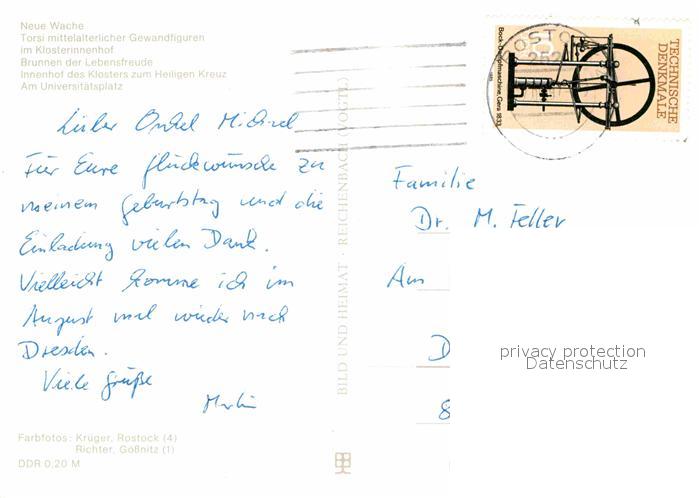 Neue Wache
Torsi mittelalterlicher Gewandfiguren
im Klosterinnenhof
Brunnen der Lebensfreude
Innenhof des Klosters zum Heiligen Kreuz
Am Universitätsplatz
Lieber Onkel Michael
Für Eure Glückwünsche zu
meinem Geburtstag und die
Einladung vielen Dank.
Vielleicht komme ich im
August mal wieder nach
Dresden.
Viele Grüße
Martin
Farbfotos: Krüger, Rostock (4)
Richter, Gößnitz (1)
DDR 0,20 M
BILD UND HEIMAT · REICHENBACH (VOGTL)
TECHNISCHE
DENKMALE
Bock-Dampfmaschine, Gera 1833
Familie
Dr. M. Feller
Am
D
8
privacy protection
Datenschutz